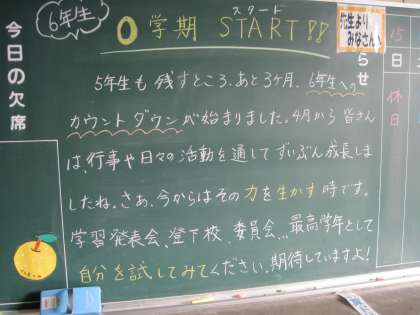 6年生
0学期 START!!
スタート
先生より
みなさんへ
らせ
今日の欠席
15
日
休日
5年生も残すところ、あと3ヶ月。6年生への
カウントダウンが始まりました。4月から皆さん
は、行事や日々の活動を通してずいぶん成長しま
したね。さあ、今からはその力を生かす時です。
学習発表会、登下校、委員会、、、最高学年として
自分を試してみてください。期待していますよ!